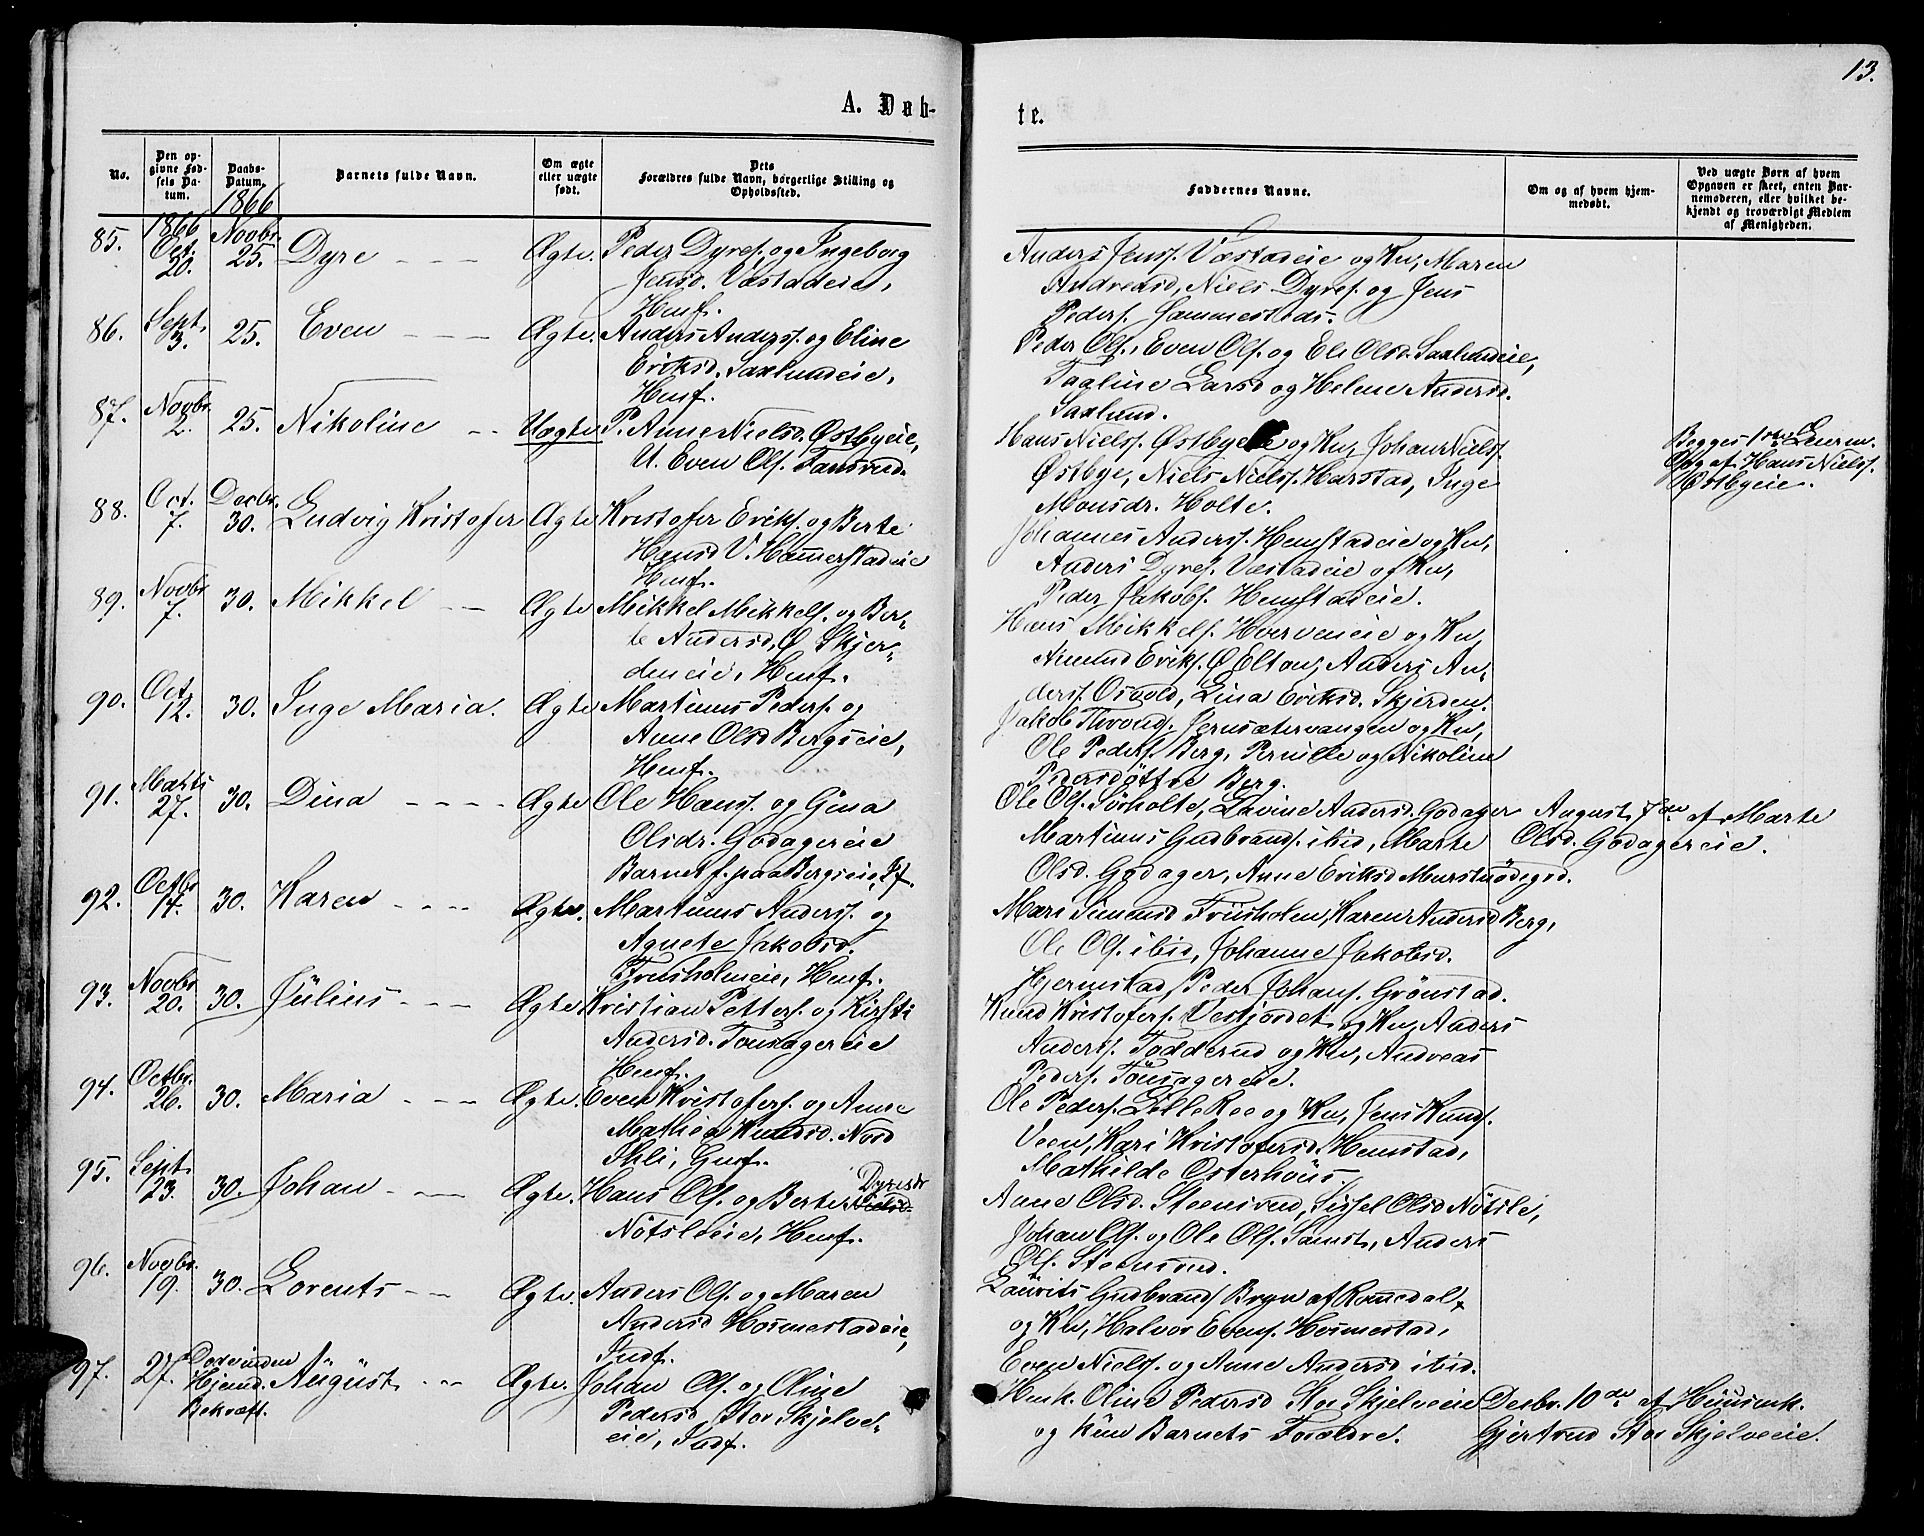 13.
A. Døb-
te.
No.
Den op-
givne Fød-
sels Da-
tum.
Daabs-
Datum.
Barnets fulde Navn.
Om ægte
eller uægte
født.
Dets
Forældres fulde Navn, borgerlige Stilling og
Opholdssted.
Faddernes Navne.
Om og af hvem hjem-
medøbt.
Ved uægte Børn af hvem
Opgaven er skeet, enten Bar-
nemoderen, eller hvilket be-
kjendt og troværdigt Medlem
af Menigheden.
1866
1866
85. Oct. 20. Novbr. 25. Dyre Ægte. Peder Dyres. og Ingeborg
Jensd. Væstadeie,
Hemf.
Anders Jenss. Væstadeie og Kn, Maren
Andreasd, Niels Dyres. og Jens
Peders. Hammerstads.
86. Sept. 3. 25. Even Ægte. Anders Anderss. og Eline
Eriksd. Saxlundeie,
Hemf.
Peder Ols. Even Ols. og Eli Olsd. Saxlundeie,
Taaline Larsd og Helene Andersd.
Saxlund.
87. Novbr 2. 25. Nikoline Uægte P. Anne Nielsd. Østbyeie,
U. Even Ols. Tansrud.
Hans Nielss. Østbyeie og Kn, Johan Niels.
Østbye, Niels Nielss. Harstad, Inge
Monsdr. Holte.
Begges 1ste Leierm.
Opg af Hans Nielss.
Østbyeie.
88. Oct. 7. Decbr. 30. Ludvig Kristofer Ægte Kristofer Eriks. og Berte
Hansd V. Hammerstadeie
Hemf.
Johannes Anderss. Hemstadeie og Kn,
Anders Dyres. Væstadeie og Kn,
Peder Jakobs. Hemstadeie.
89. Novbr 7. 30. Mikkel Ægte Mikkel Mikkels. og Ber-
te Andersd, Ø Skjer-
deneie, Hemf.
Hans Mikkels. Hverveneie og Kn,
Amund Eriks. Ø Elton, Anders An-
derss. Osvold, Lina Eriksd. Skjerden.
90. Oct. 12. 30. Inge Maria. Ægte Martinus Peders. og
Anne Olsd Bergseie,
Hemf.
Jakob Thronds. Jernsætervangen og Kn,
Ole Peders. Berg, Pernille og Nikoline
Pedersdöttre Berg.
91. Marts 27. 30. Dina Ægte Ole Hanss. og Gina
Olsdr. Godagereie
Barnet f. paa Bergseie,
Ole Ols. Sörholte, Lavine Andersd. Godager
Martinus Gudbrands. ibid, Marte
Olsd. Godager, Anne Eriksd
August, af Marte
Olsd. Godagereie.
92. Octbr 14. 30. Karen Ægte. Martinus Anderss. og
Agnete Jakobsd.
Friisholmeie, Hemf.
Mari Simensd Friisholm, Karen Andersd Berg,
Ole Ols. ibid, Johanne Jakobsd.
Hjermstad, Peder Johans. Grönstad.
93. Novbr 20. 30. Jülius Ægte Kristian Petters. og Kirsti
Andersd. Tönsagereie
Hemf.
Knud Kristofers. Vesljordet og Kn, Anders
Anderss. Todderud og Kn, Andreas
Peders. Tönsagereie.
94. Octbr. 26. 30. Maria Ægte. Even Kristofers. og Anne
Mathea Knudsd. Nord
Ihli,
Ole Peders. Lille Roe og Kn, Jens Knuds.
Veen, Kari Kristofersd. Hemstad,
Mathilde Osterhöüs.
95. Sept. 23. 30. Johan Ægte. Hans Ols. og Berte Nielsd. Dyresdr
Nötsleeie, Hemf.
Anne Olsd. Steensrud, Sissel Olsd Nötsle,
Johan Ols. og Ole Ols. Samst, Anders
Ols. Steensrud.
96. Novbr. 19. 30. Lorents Ægte. Anders Ols. og Maren
Andersd Hosmestadeie,
Indf.
Laurits Gudbrands Bryn af Romedal
og Kn, Halvor Evens. Hosmestad,
Even Nielss. og Anne Andersd ibid.
97. 27. Döde inden
Hjemd.
Bekræft. Äügüst Ægte. Johan Ols. og Oline
Pedersd, Stor Skjelve-
eie, Indf.
Husmk. Oline Pedersd Stor Skjelveeie
og Kün Barnets Forældre.
Decbr. 10de af Hüüsmk.
Gjertrud Stor Skjelveeie.